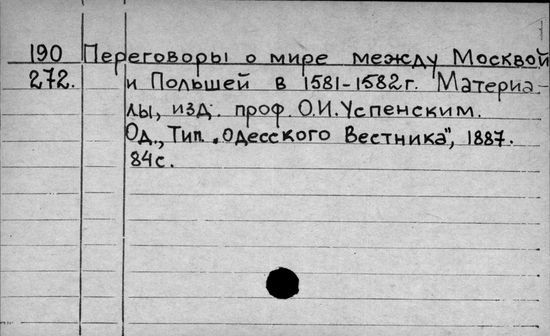 190 Переговоры о мире между Москвой
272. и Польшей в 1581-1582г. Материа-
лы, изд. проф. О.И.Успенским.
Од., Тип. „Одесского Вестника", 1887.
84с.